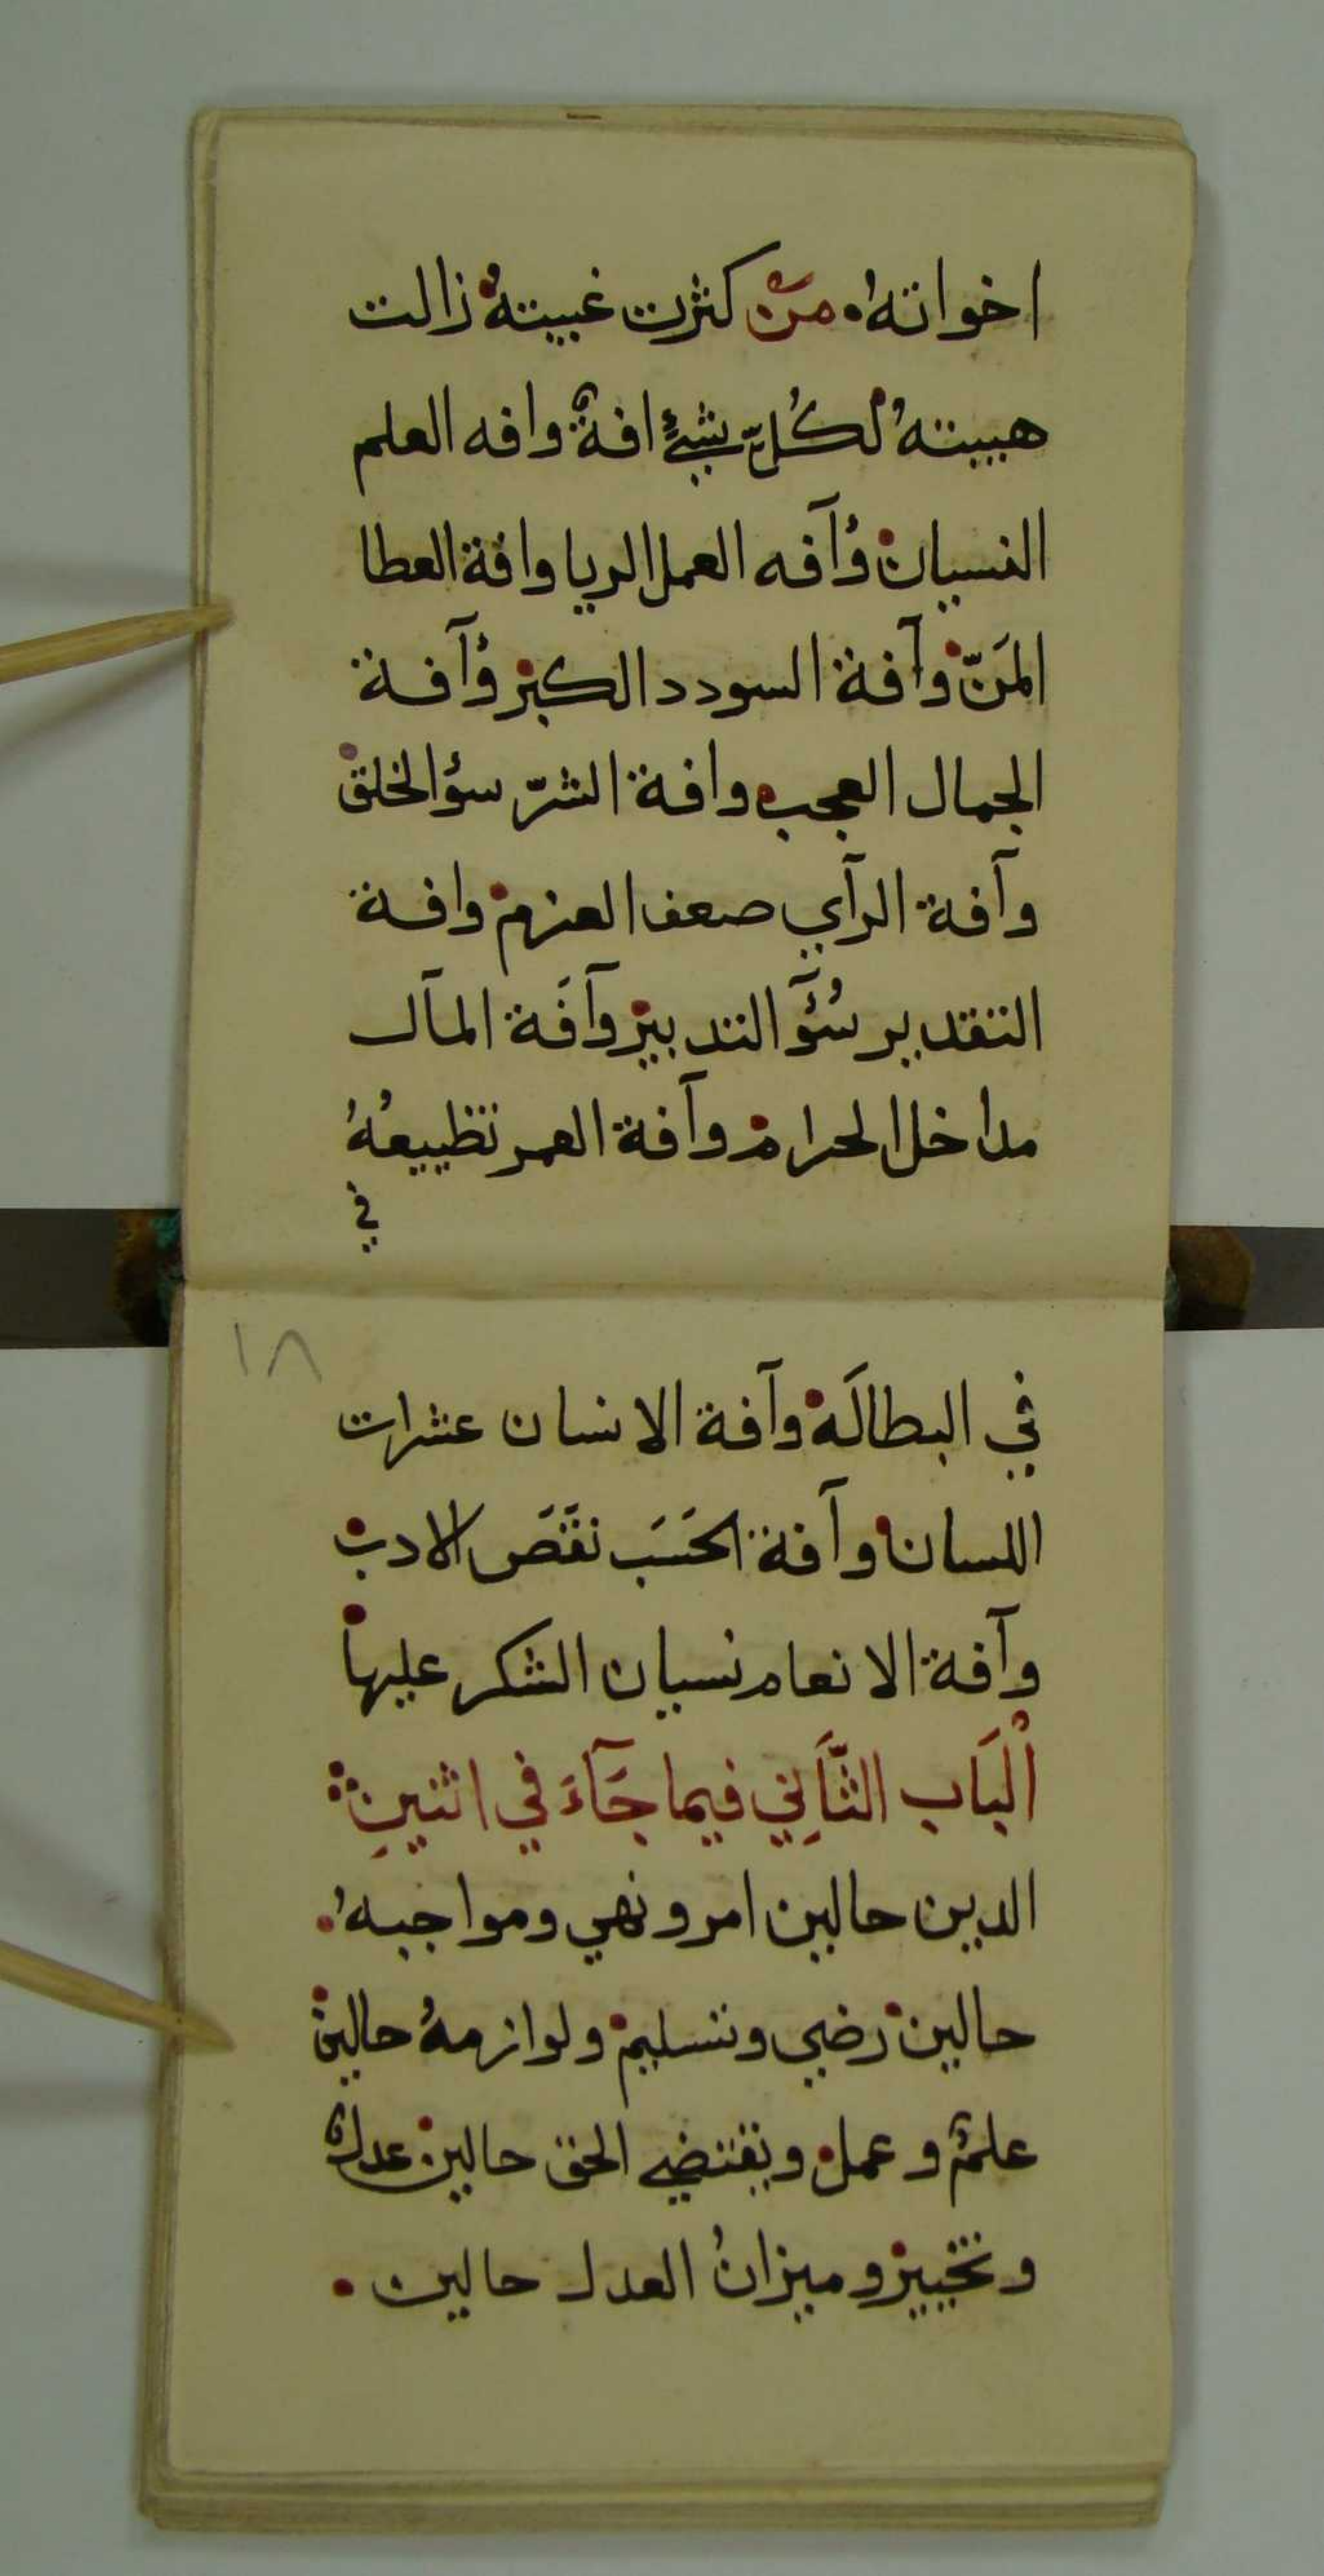 اخواته. من كثرت غيبتهُ زالت
هيبتهُ لكُلّ شيءٍ افةٌ وافه العلم
النسيان وُآفه العمل الريا وافة العطا
المَنّ وآفة السودد الكبر وُآفة
الجمال العجب وافة الشرّ سؤالخلق
وآفة الرآي صعف العزم وافة
التقدير سُؤَ التدبير وآفَة المآل
مداخل الحرام وآفة العمر تظييعُهُ
في
١٨
في البطالَة وآفة الانسان عثرات
اللسان وآفة الحَسَب نقَصَ الادب
وآفة الانعام نسيان الشكر عليها
اْلبَاب الثَّاَنِي فيما جَآءَ في اثنينِ
الدين حالين امر ونهي ومواجبهُ.
حالين رضي وتسليم ولوازمهُ حالين
علمٌ وعمل ويقتضي الحق حالين عدلٌ
وتخيير وميزانُ العدل حالين.